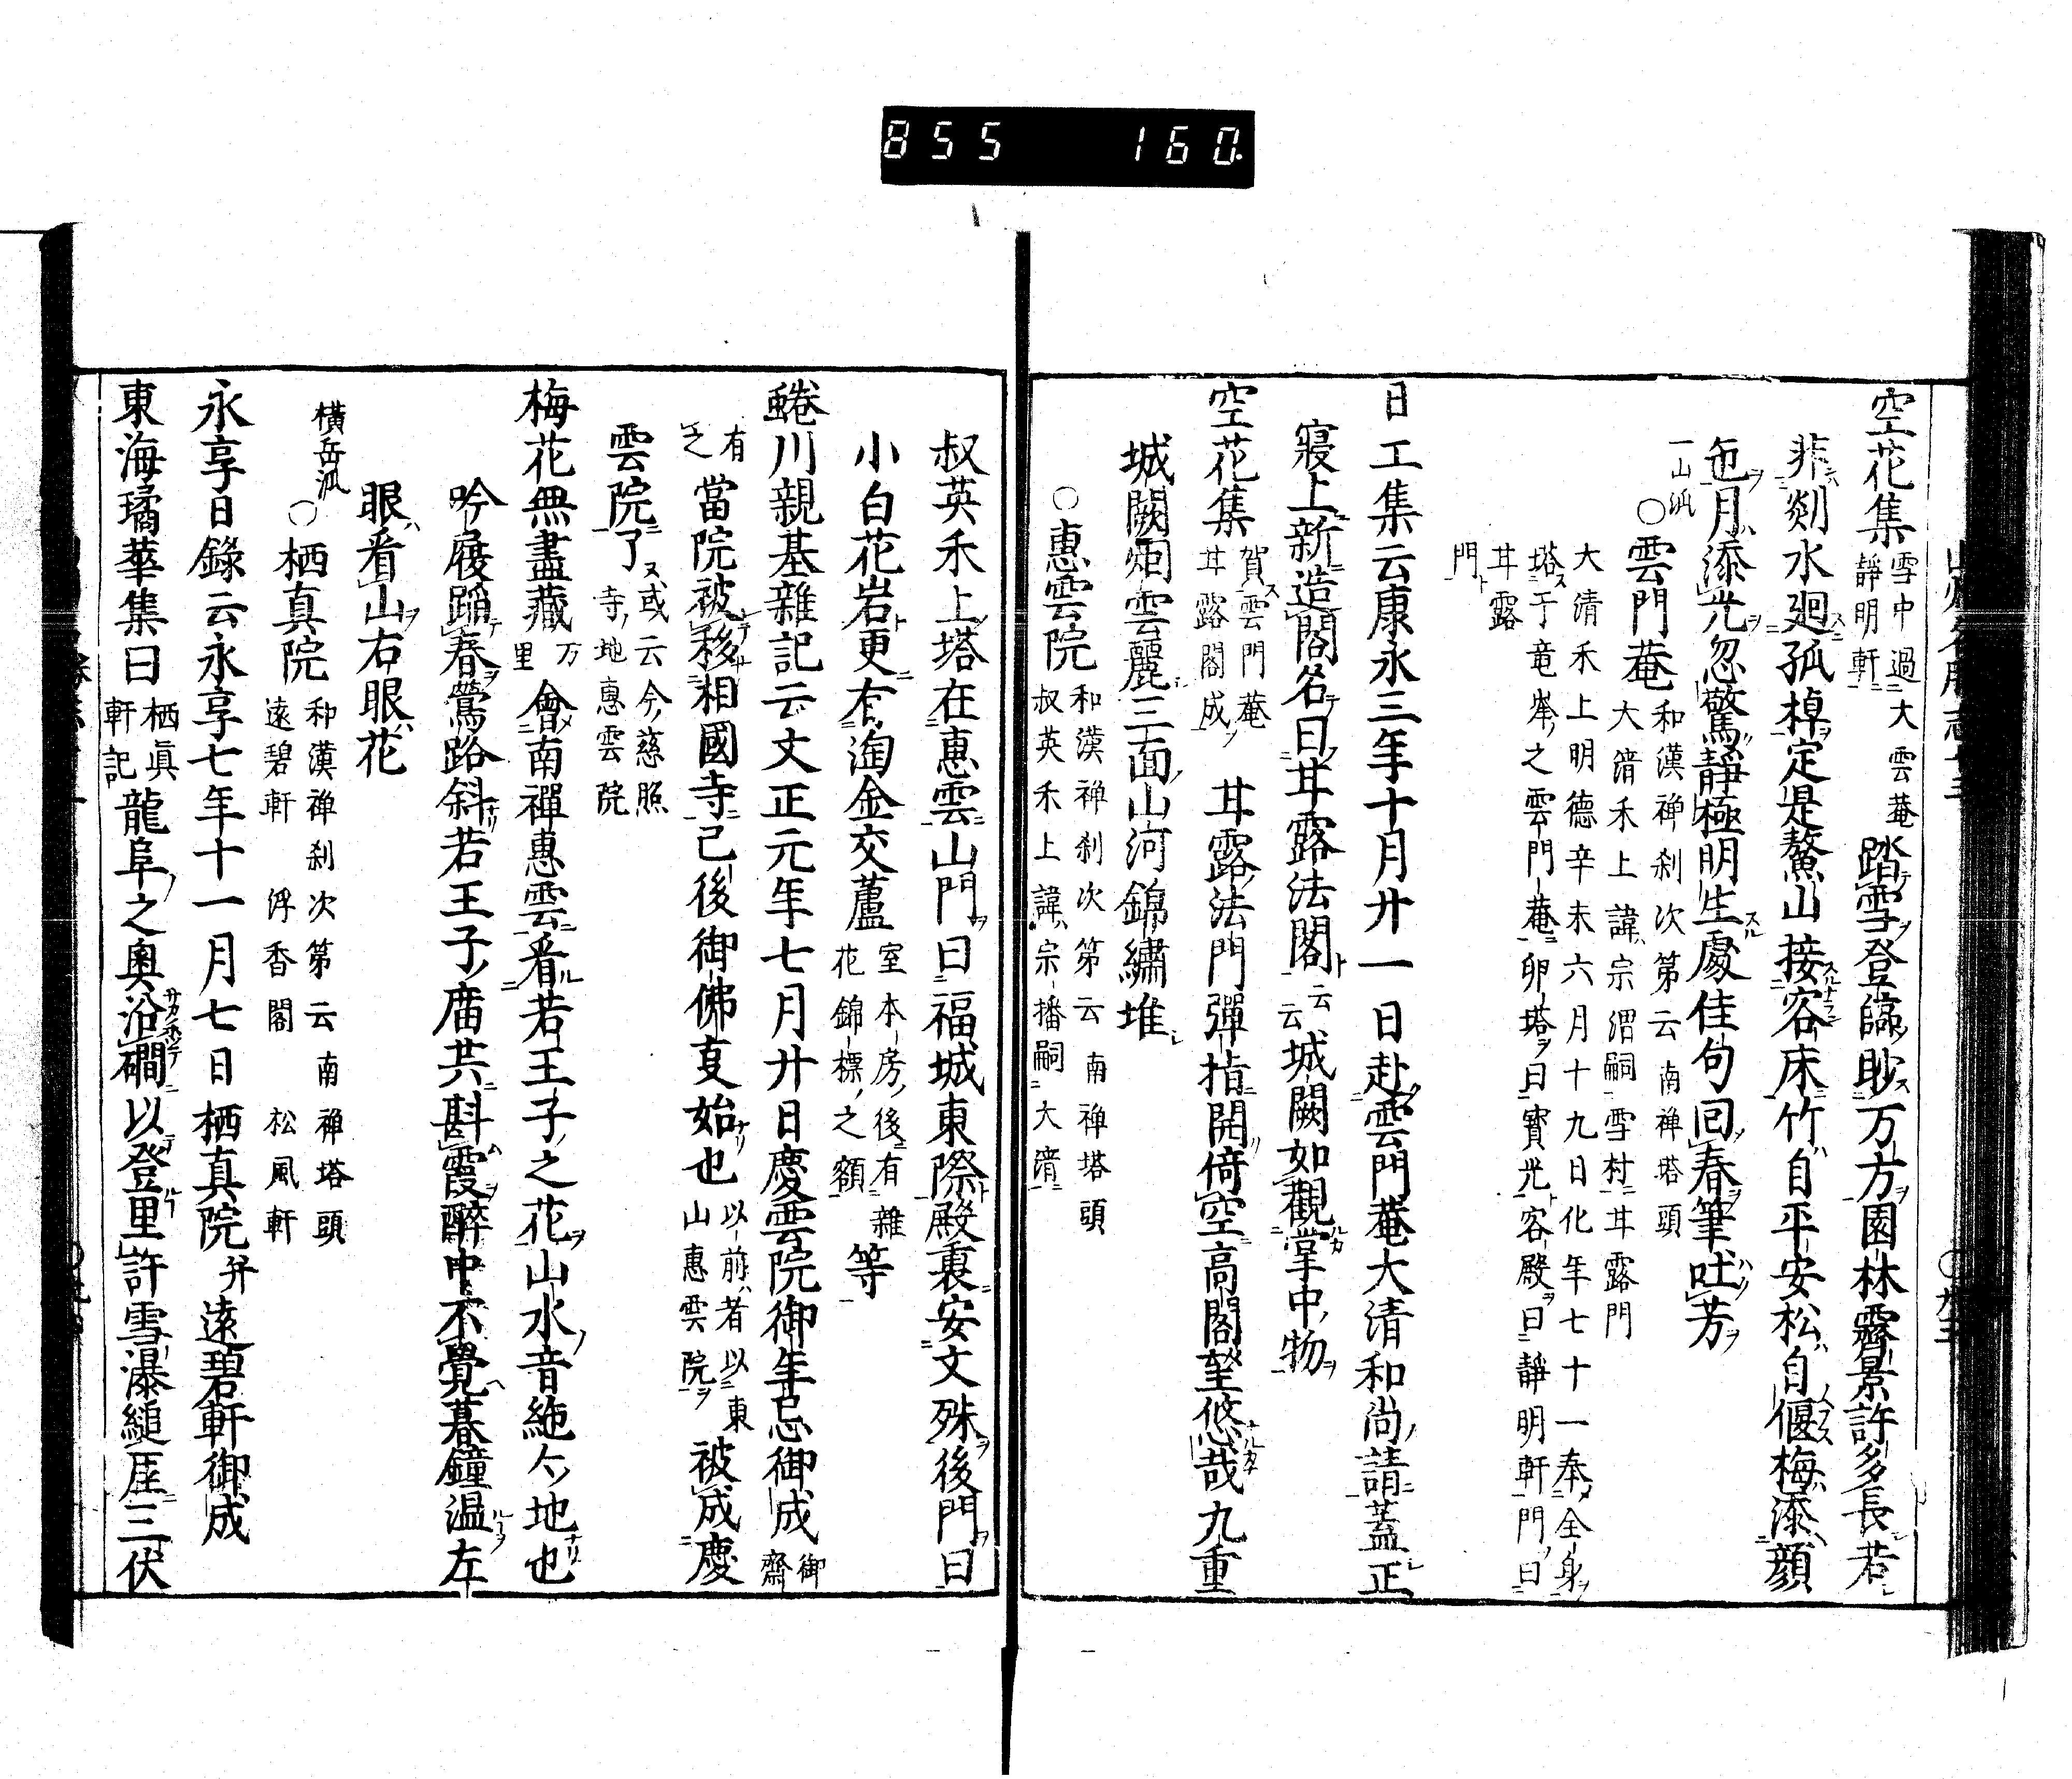 855 160
空花集 雪中過大雲菴 静明軒 踏雪登臨眇万方園林霽景許多長若
非剡水廻孤棹定是鰲山接客床竹自平安松自偃梅添顔
色月添光忽驚靜極明生處佳句回春筆吐芳
一山派
○雲門菴 和漢禅刹次第云南禅塔頭 大清禾上諱宗渭嗣雪村甘露門
大清禾上明德辛未六月十九日化年七十一奉全身
塔于竜峯之雲門菴卵塔曰寳光客殿曰静明軒門曰
甘露
門
日工集云康永三年十月廿一日赴雲門菴大清和尚請蓋正
寢上新造閣名曰甘露法閣云云城闕如觀掌中物
空花集 賀雲門菴 甘露閣成 甘露法門彈指開倚空高閣𦤶悠哉九重
城闕烟雲麗三面山河錦繡堆
○惠雲院 和漢禅刹次第云南禅塔頭 叔英禾上諱宗播嗣大清
叔英禾上塔在惠雲山門曰福城東際殿裏安文殊後門曰
小白花岩更有淘金交蘆 室本房後有雜 花錦標之額 等
蜷川親基雜記云文正元年七月廿日慶雲院御年忌御成 御齋
有之 當院被移相國寺已後御佛夏始也 以前者以東山惠雲院 被成慶
雲院了 又或云今慈照寺地惠雲院
梅花無盡藏 万里 會南禪惠雲看若王子之花山水音絶久地也
吟履踊春鶯路斜若王子廣共斟霞醉中不覺暮鐘温左
眼看山右眼花
橫岳派
○栖真院 和漢禅刹次第云南禅塔頭 遠碧軒 俘香閣 松風軒
永享日錄云永享七年十一月七日栖真院并遠碧軒御成
東海璚華集曰 栖眞軒記 龍阜之奧沿磵以登里許雪瀑縋厓三伏